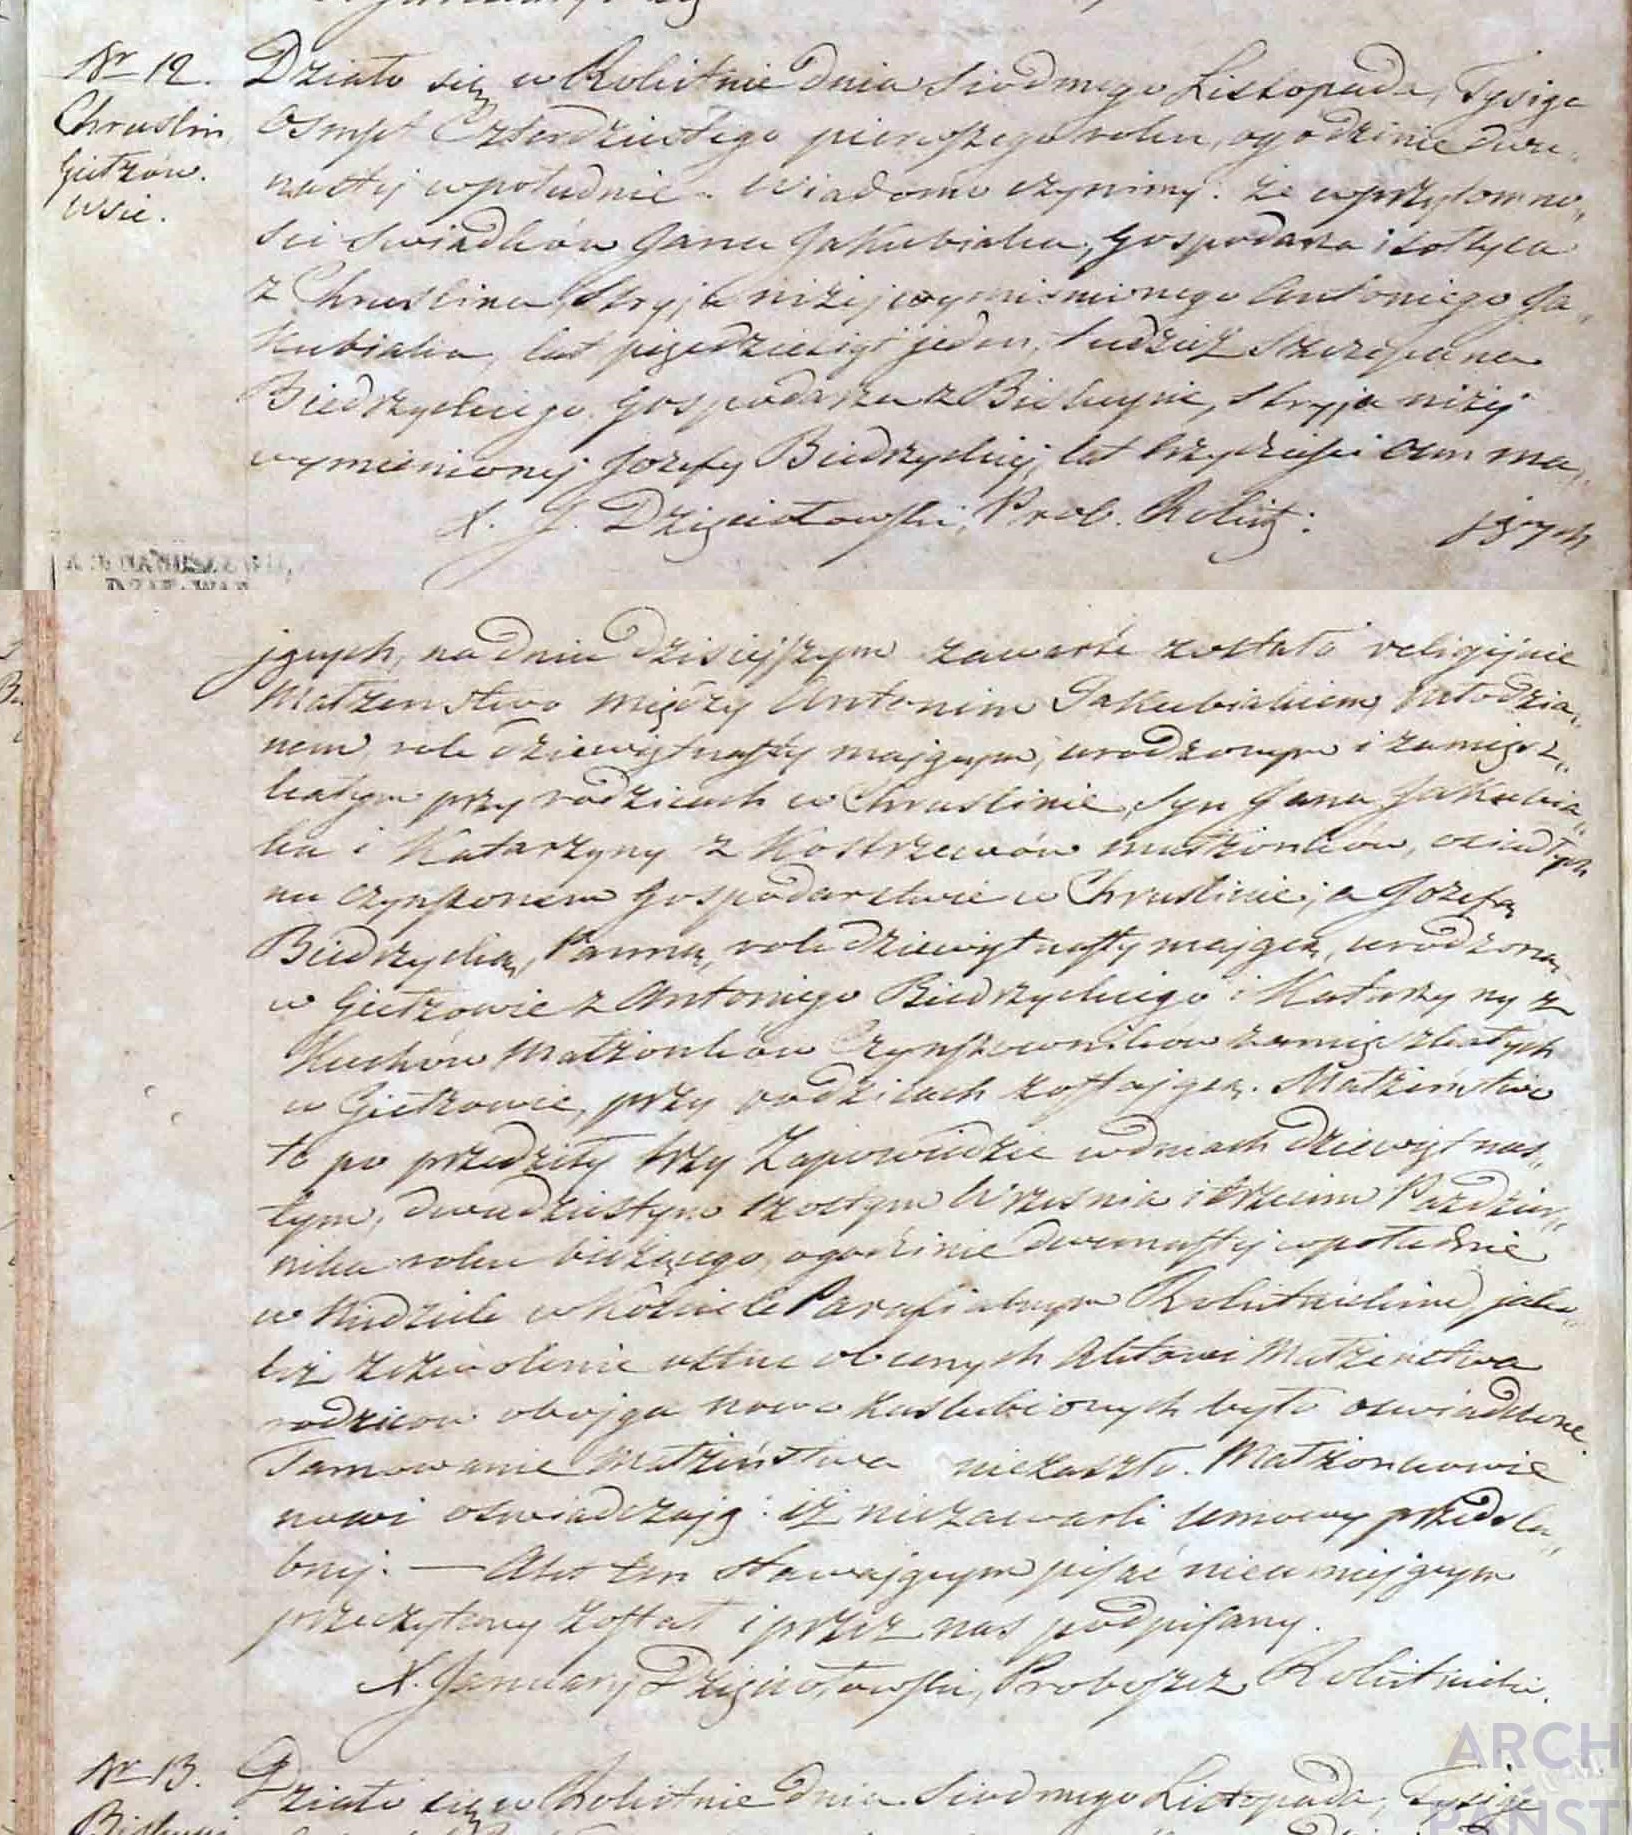 Nr 12.
Chruslin
Giełzow.
wsie.
Działo się w Rokitnie dnia Siodmego Listopada, Tysiąc
Osmset Czterdziestego pierwszego roku, o godzinie dwu„
nastej w południe. Wiadomo czynimy: że w przytomno„
sci swiadków Jana Jakubiaka, Gospodarza i sołtysa
z Chruslina, Stryja niżej wymienionego Antoniego Ja„
kubiaka, lat pięćdziesiąt jeden, tudzież Szczepana
Biedrzyckiego Gospodarza z Biskupic, stryja niżej
wymienionej Jozefy Biedrzyckiej, lat trzydziesci osm ma„
X. J. Dzięciołowski, Prob. Rokitn:
jących
jących, na dniu dzisiejszym zawarte zostało religijnie
Małżenstwo między Antonim Jakubiakiem, Młodzia„
nem, rok dziewiętnasty mającym, urodzonym i zamiesz„
kałym przy rodzicach w Chruslinie, Syn Jana Jakubia„
ka i Katarzyny z Kostrzewów małżonków, osiadłych
na czynszowem Gospodarstwie w Chruslinie; a Jozefą
Biedrzycką, Panną, rok dziewiętnasty mającą, urodzoną
w Giełzowie z Antoniego Biedrzyckiego i Katarzyny z
Kuchów Małżonków Czynszowników zamieszkałych
w Giełzowie, przy rodzicach zostającą. Małżeństwo
to poprzedziły trzy Zapowiedzie w dniach dziewiętnas„
tym, dwudziestym szostym Września i trzecim Paździer„
nika roku bieżącego, o godzinie dwunastej w południe
w Niedziele w Kościele Parafialnym Rokitnickim, jako„
też zezwolenie ustne obecnych Aktowi Małżeństwa
rodzicow obojga nowo zaslubionych było oswiadczone.
Tamowanie Małżeństwa nie zaszło. Małżonkowie
nowi oswiadczają: iż nie zawarli umowy przedslu„
bnej. — Akt ten stawającym pisać nieumiejącym
przeczytany został i przez nas podpisany.
X. January Dzięciołowski, Proboszcz Rokitnicki.
Nr 13.
Działo się w Rokitnie dnia Siodmego Listopada, Tysiąc
ARCH
PAŃST